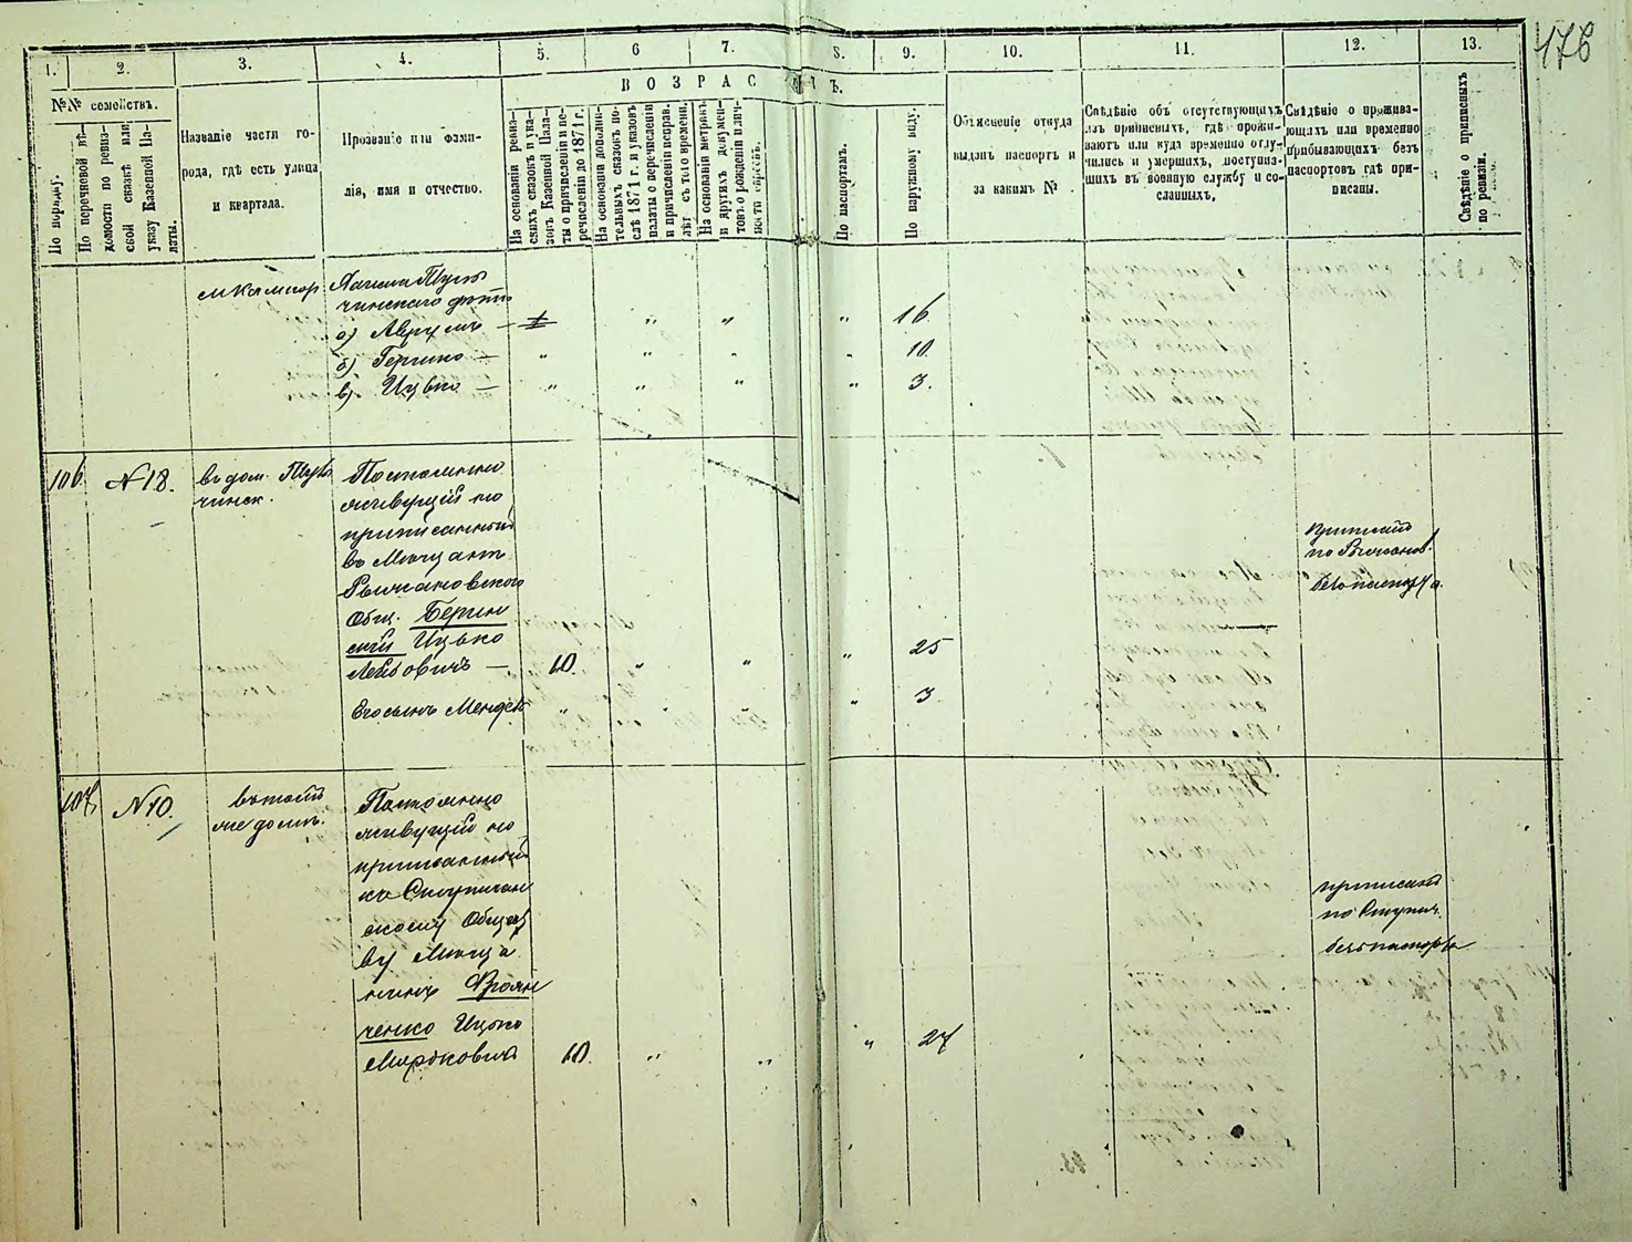 476
1. 2. 3. 4. 5. 6 7. 8. 9. 10. 11. 12. 13.
№№ семействъ.
ВОЗРАСТЪ.
По порядку.
По перечневой вѣ-
домости по ревиз-
ской сказкѣ или
указу Казенной Па-
латы.
Названіе части го-
рода, гдѣ есть улица
и квартала.
Прозваніе или фами-
лія, имя и отчество.
На основаніи ревиз-
скихъ сказокъ и ука-
зовъ Казенной Пала-
ты о причисленіи и пе-
речисленіи до 1871 г.
На основаніи дополни-
тельныхъ сказокъ по-
слѣ 1871 г. и указовъ
палаты о перечисленіи
и причисленіи исправ.
лѣт съ того времени.
На основаніи метрикъ
и другихъ докумен-
товъ о рожденіи и лич-
ности евреевъ.
По паспортамъ.
По наружному виду.
Объясненіе откуда
выданъ паспортъ и
за какимъ №
Свѣдѣніе объ отсутствующихъ
изъ приписныхъ, гдѣ прожи-
ваютъ или куда временно отлу-
чились и умершихъ, поступив-
шихъ въ военную службу и со-
сланныхъ.
Свѣдѣніе о прожива-
ющихъ или временно
прибывающихъ безъ
паспортовъ гдѣ при-
писаны.
Свѣдѣніе о приписныхъ
по ревизіи.
чинскаго дѣти
а) Аврумъ — " " " 16
б) Гершко — " " " " 10.
в) Ицько — " " " " 3.
106. №18. въ дом. Туль
чинск.
Постоянно
живущій но
приписанный
въ Мещане
Рыжановского
Общ. Берин
скій Ицько
Лейбовичъ — 10. " " " 25
Его сынъ Мендель " " " " 3
приписанъ
по Рыжанов.
безъ паспорта.
107. №10. въ томъ
же домѣ.
Постоянно
живущій но
приписанный
скому Общест
ву Меща
нинъ
ченко Ицько
Мордковичъ 10. " " " 27
приписанъ
безъ паспорта